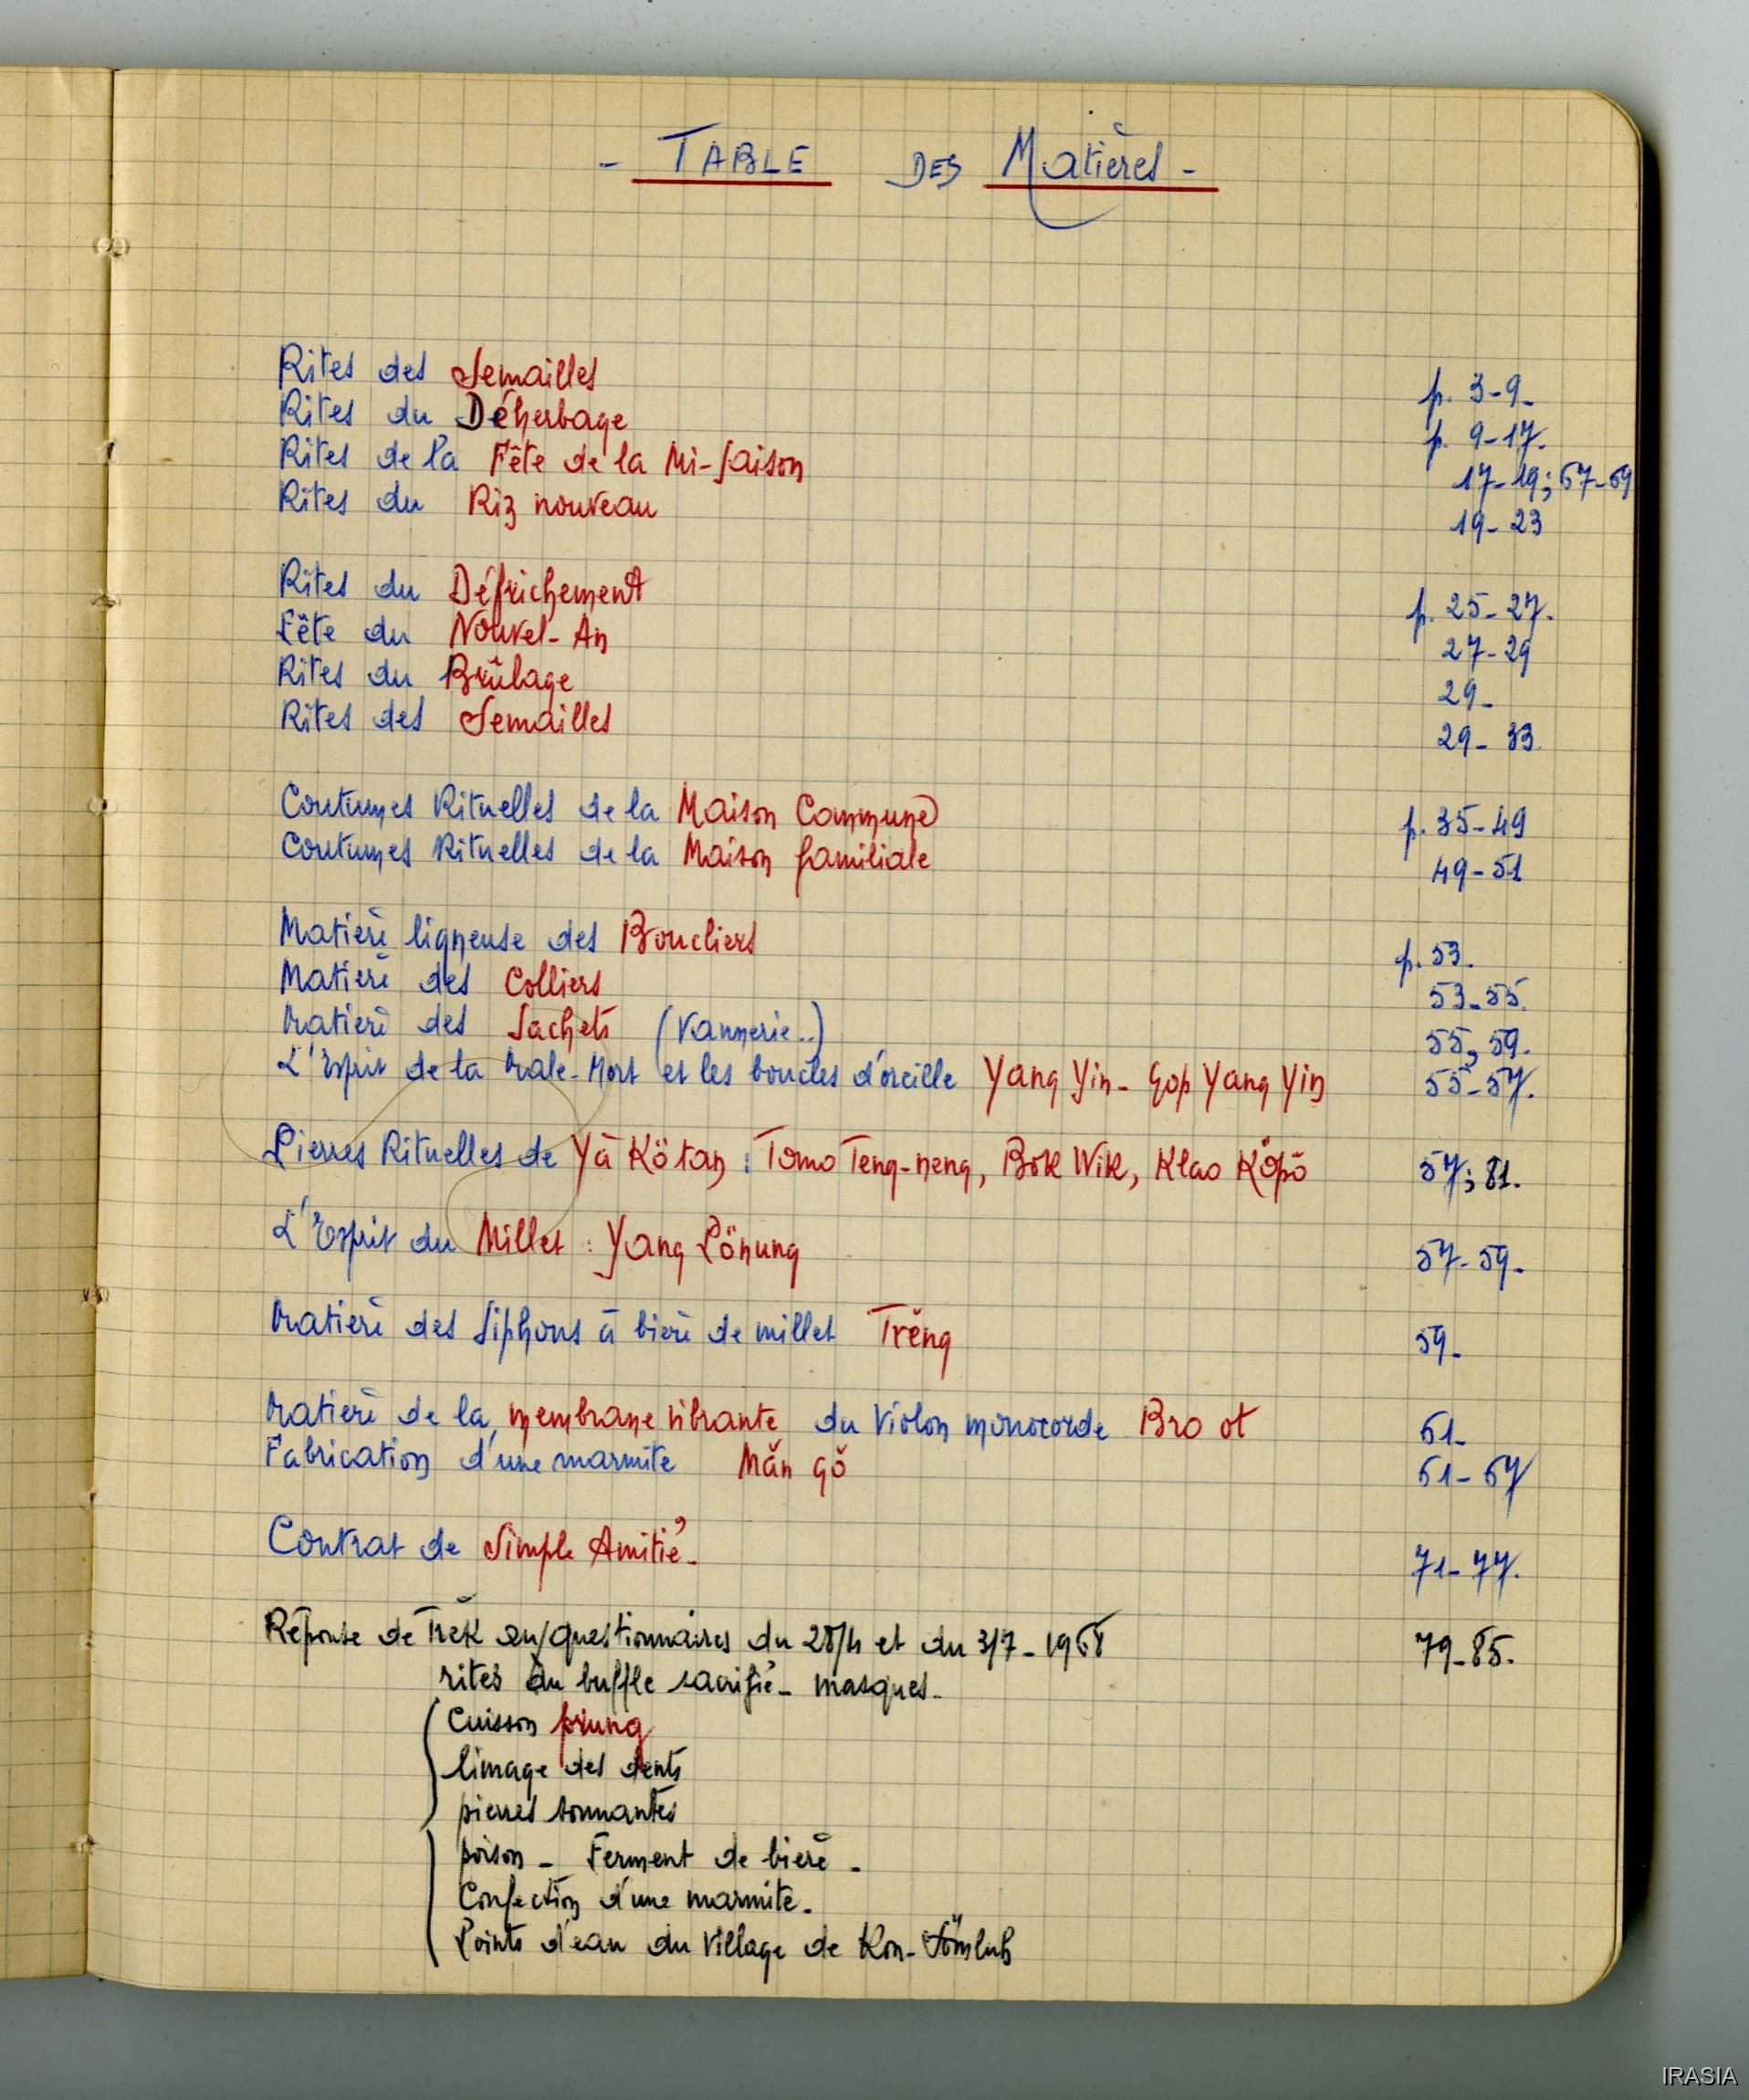 - TABLE DES Matières -
Rites des Semailles p. 3-9-
Rites du Déherbage p. 9-17.
Rites de la Fête de la Mi-Saison 17-19; 67-69
Rites du Riz nouveau 19-23
Rites du Défrichement p. 25-27.
Fête du Nouvel-An 27-29
Rites du Brûlage 29-
Rites des Semailles 29-33.
Coutumes Rituelles de la Maison Commune p. 35-49
Coutumes Rituelles de la Maison familiale 49-51
Matière ligneuse des Boucliers p. 53.
Matière des Colliers 53-55.
Matière des Sachets (Vannerie..) 55, 59.
L'Esprit de la Male-Mort et les boucles d'oreille Yang Yin- Gop Yang Yin 55-57.
Pierres Rituelles de Yă Kötan : Tomo Teng-neng, Bŏk Wik, Klao Köpŏ 57; 81.
L'Esprit du Millet : Yang Pönung 57-59-
Matière des Siphons à bière de millet Trĕng 59-
Matière de la membrane vibrante du Violon monocorde Bro ot 61-
Fabrication d'une marmite Măn gŏ 61-67
Contrat de Simple Amitié- 71-77.
Réponse de Trĕk aux questionnaires du 28/4 et du 3/7-1968 79-85.
rites du buffle sacrifié- masques-
Cuisson prung
limage des dents
pierres sonnantes
poison - Ferment de bière -
Confection d'une marmite-
Points d'eau du Village de Kon-Sömluh
IRASIA